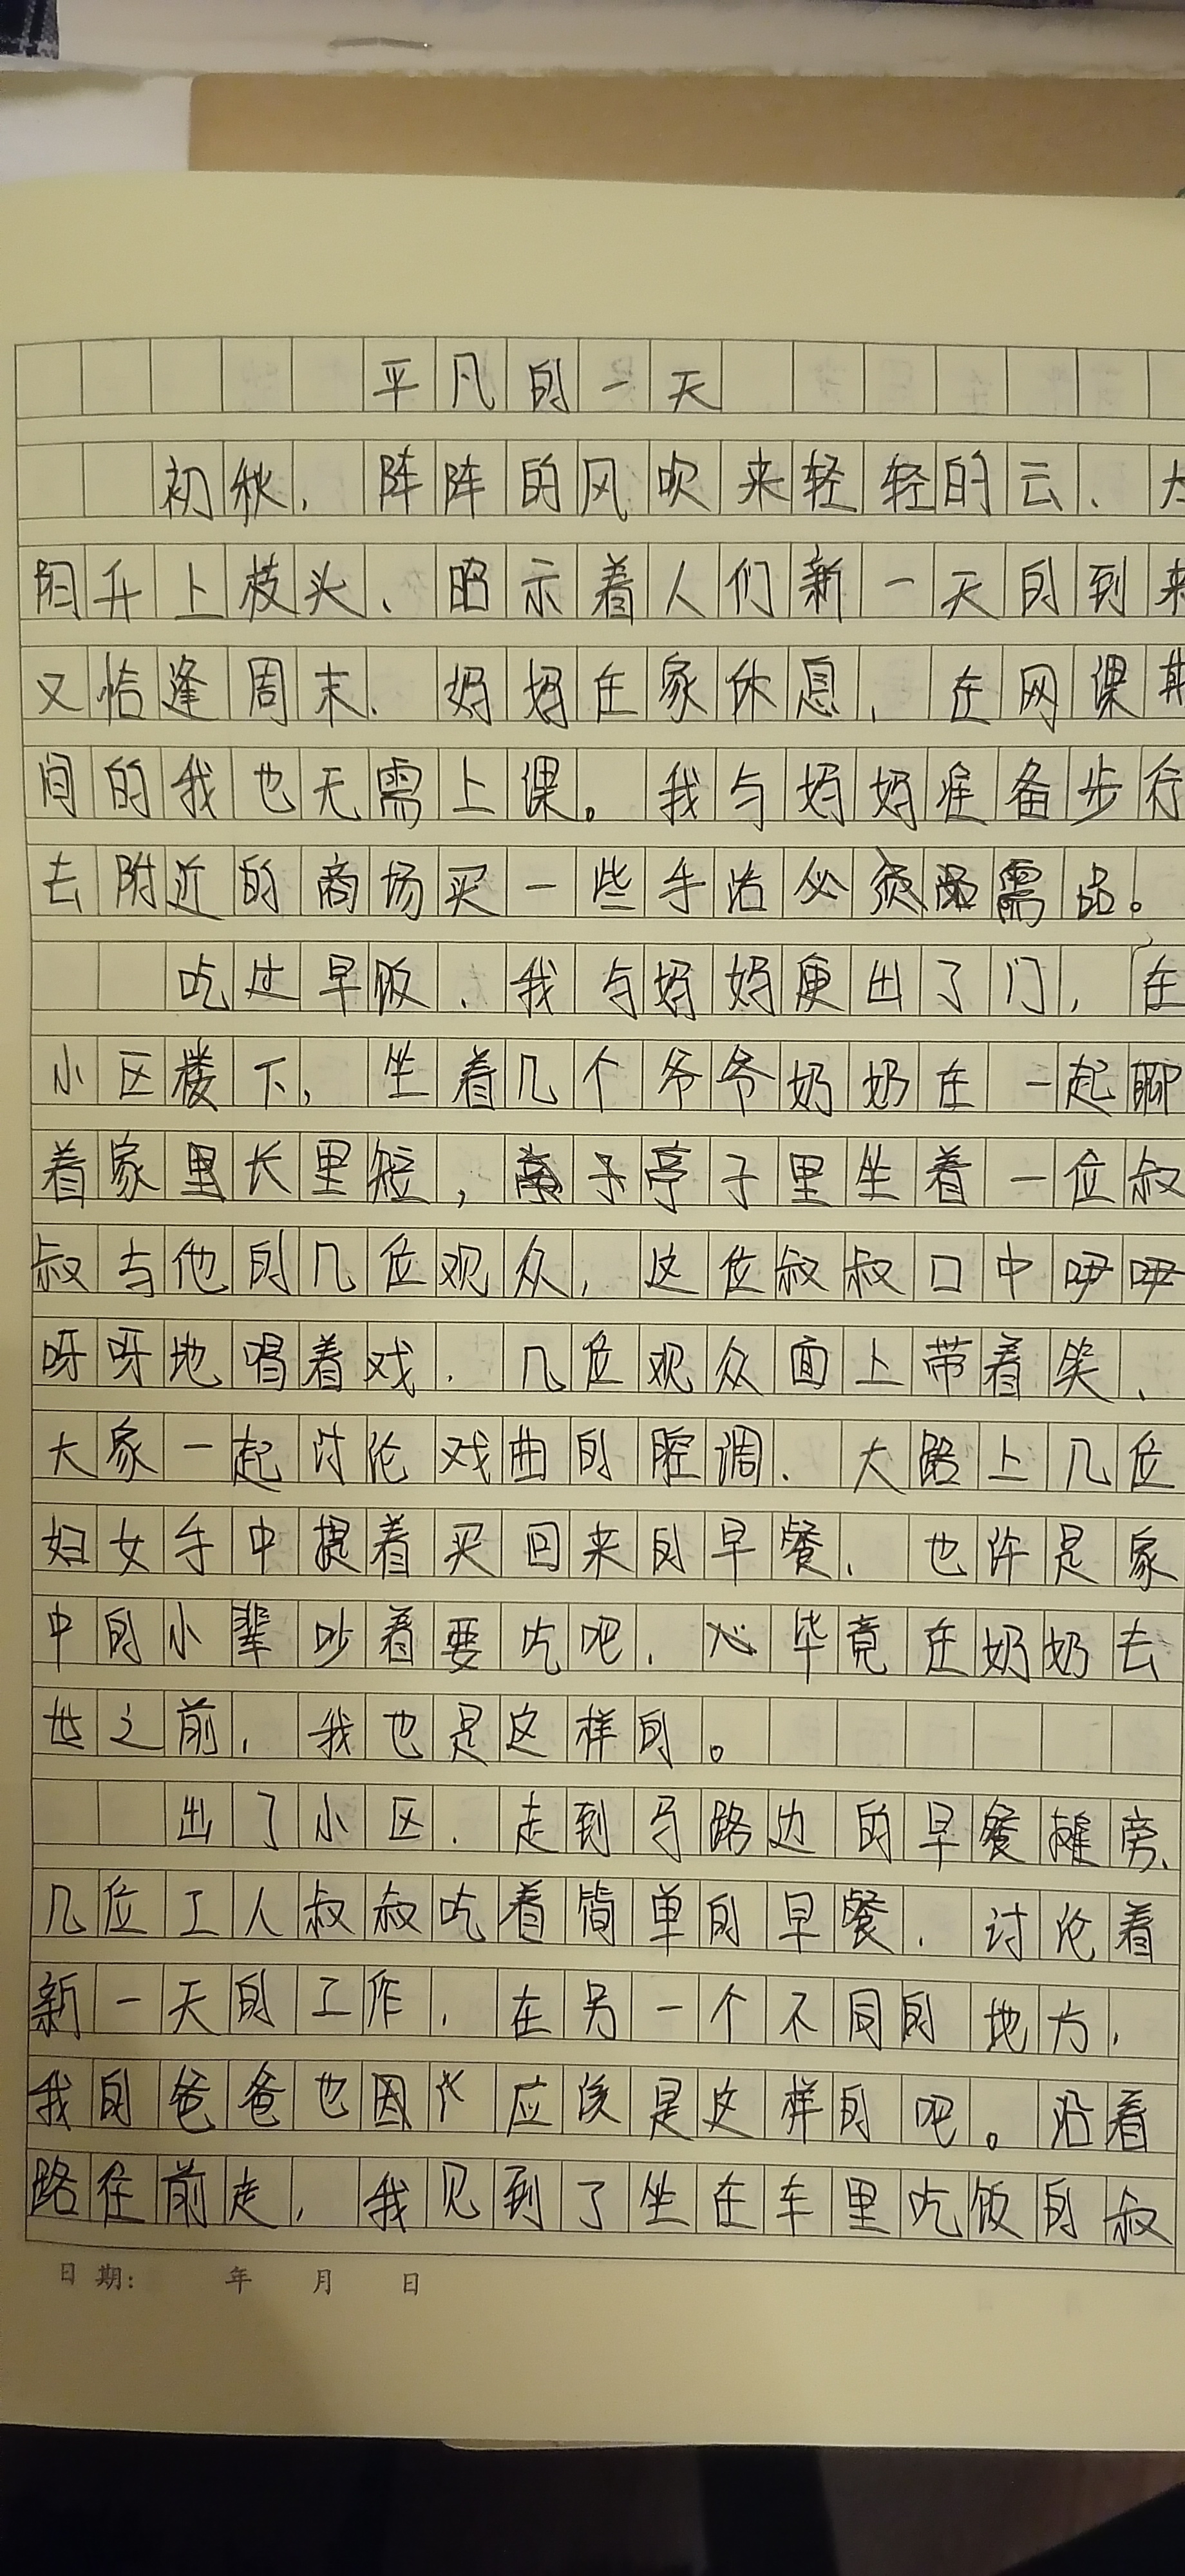 平凡的一天
初秋，阵阵的风吹来轻轻的云、太
阳升上枝头、昭示着人们新一天的到来
又恰逢周末、妈妈在家休息，在网课期
间的我也无需上课。我与妈妈准备步行
去附近的商场买一些生活必需品。
吃过早饭、我与妈妈便出了门，在
小区楼下，坐着几个爷爷奶奶在一起聊
着家里长里短，亭子里坐着一位叔
叔与他的几位观众，这位叔叔口中咿咿
呀呀地唱着戏．几位观众面上带着笑、
大家一起讨论戏曲的腔调．大路上几位
妇女手中提着买回来的早餐、也许是家
中的小辈吵着要吃吧．毕竟在奶奶去
世之前，我也是这样的。
出了小区．走到马路边的早餐摊旁、
几位工人叔叔吃着简单的早餐．讨论着
新一天的工作，在另一个不同的地方，
我的爸爸也应该是这样的吧。沿着
路往前走，我见到了坐在车里吃饭的叔
日期： 年 月 日